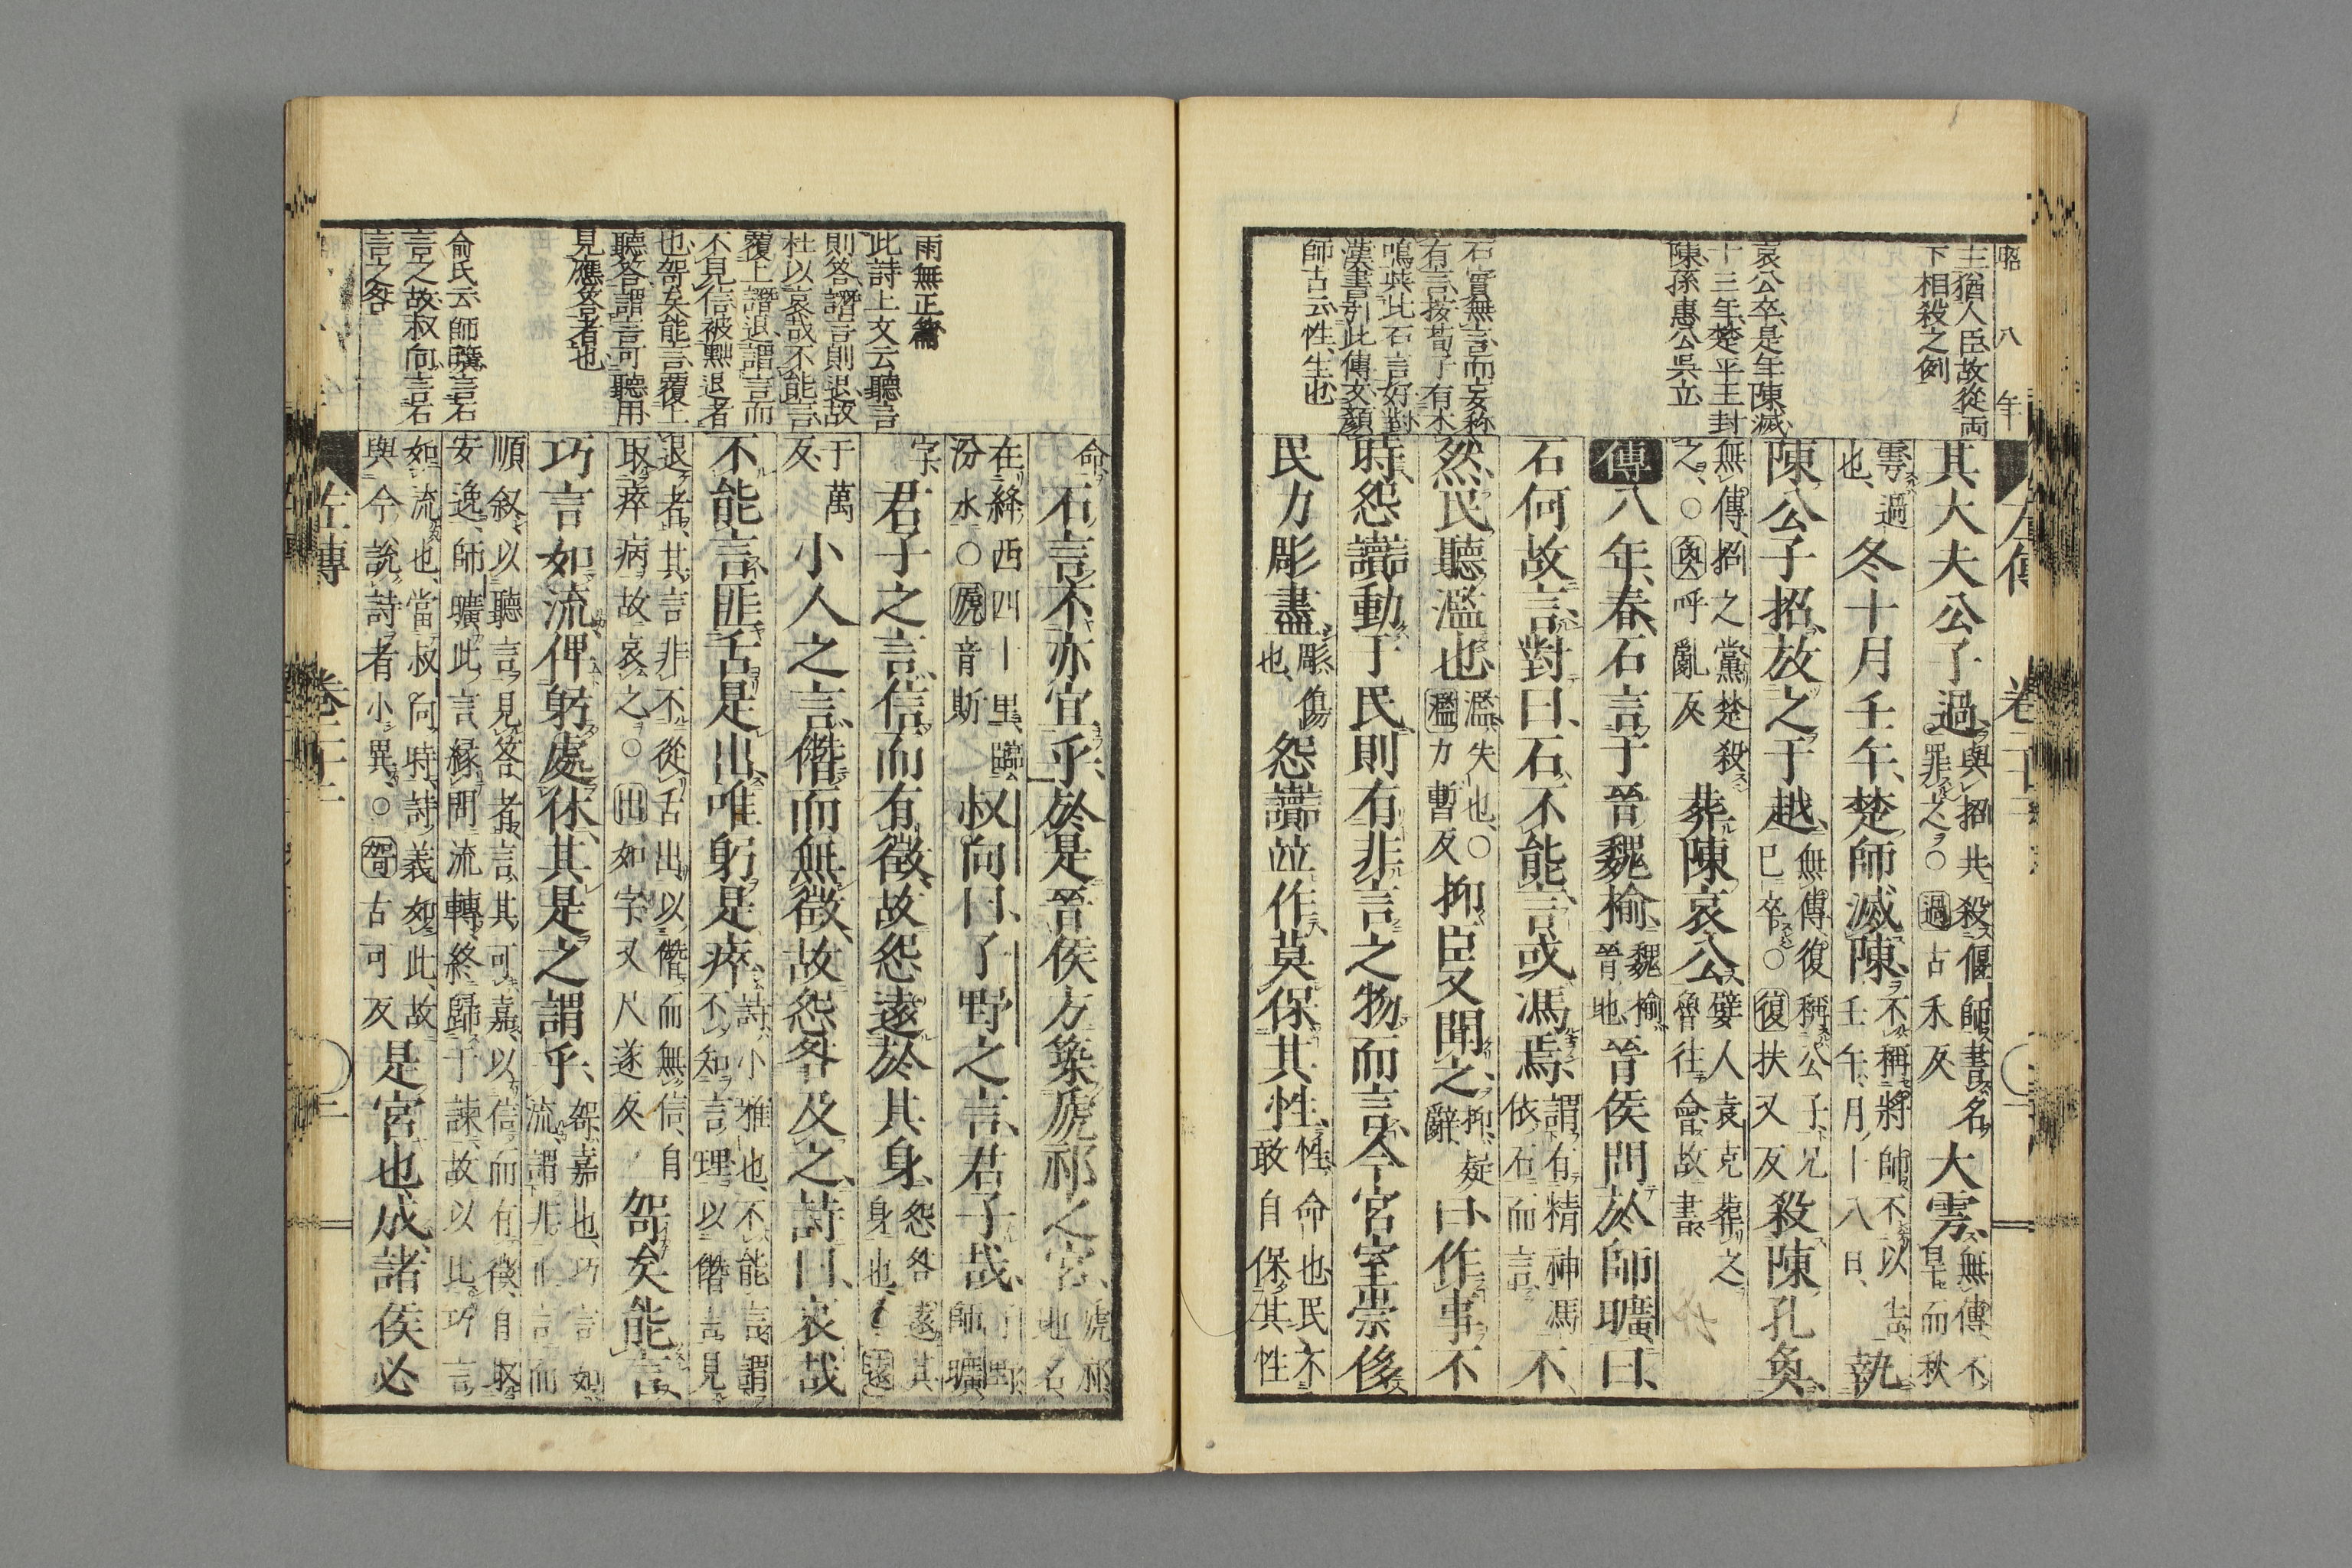 昭 八年
主猶人臣故從両
下相殺之例
哀公卒是年陳滅
十三年楚平王封
陳孫惠公吳立
石實無言而妄称
有言按荀子有木
鳴与此石言好對
漢書引此傳文顏
師古云性生也
其大夫公子過與招共殺偃師書名罪之○過古禾反大雩無傳不旱而秋
雩過也冬十月壬午楚師滅陳不稱將帥不以告壬午月十八日執
陳公子招放之于越無傳復稱公子兄已卒○復扶又反殺陳孔奐
無傳招之黨楚殺之○奐呼亂反葬陳哀公嬖人袁克葬之魯往會故書
傳八年春石言于晉魏榆魏榆晉地晉侯問於師曠曰
石何故言對曰石不能言或馮焉謂有精神馮依石而言不
然民聽濫也濫失也○濫力暫反抑臣又聞之抑疑辭曰作事不
時怨讟動于民則有非言之物而言今宮室崇侈
民力彫盡彫傷也怨讟並作莫保其性性命也民不敢自保其性
雨無正篇
此詩上文云聽言
則答譖言則退故
杜以哀哉不能言
覆上譖退謂言而
不見信被黜退者
也哿矣能言覆上
聽答謂言可聽用
見應答者也
俞氏云師曠言石
言之故叔向言石
言之咎
命石言不亦宜乎於是晉侯方築虒祁之宮虒祁地名
在絳西四十里臨汾水○虒音斯叔向曰子野之言君子哉子野師曠
字君子之言信而有徵故怨遠於其身怨咎遠其身也○遠
于萬反小人之言僭而無徵故怨咎及之詩曰哀哉
不能言匪舌是出唯躬是瘁詩小雅也不能言謂不知言理以僭言見
退者其言非不從舌出以僭而無信自取瘁病故哀之○出如字又尺遂反哿矣能言
巧言如流俾躬處休其是之謂乎哿嘉也巧言如流謂非正言而
順叙以聽言見答者言其可嘉以信而有徵自取安逸師曠此言緣問流轉終歸于諫故以比巧言
如流也當叔向時詩義如此故與今說詩者小異○哿古可反是宮也成諸侯必
左傳 卷二十二